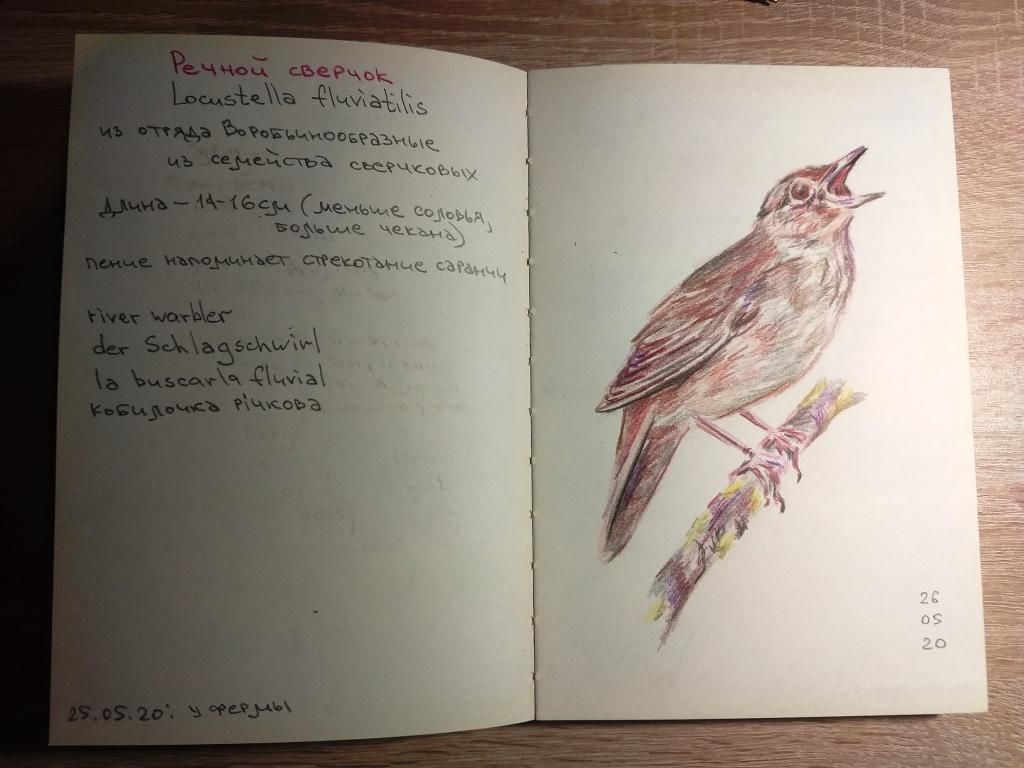 Речной сверчок
Locustella fluviatilis
из отряда Воробьинообразные
из семейства сверчковых
длина – 14-16см (меньше соловья,
больше чекана)
пение напоминает стрекотание саранчи
river warbler
der Schlagschwirl
la buscarla fluvial
кобилочка річкова
25.05.20: у фермы
26
05
20